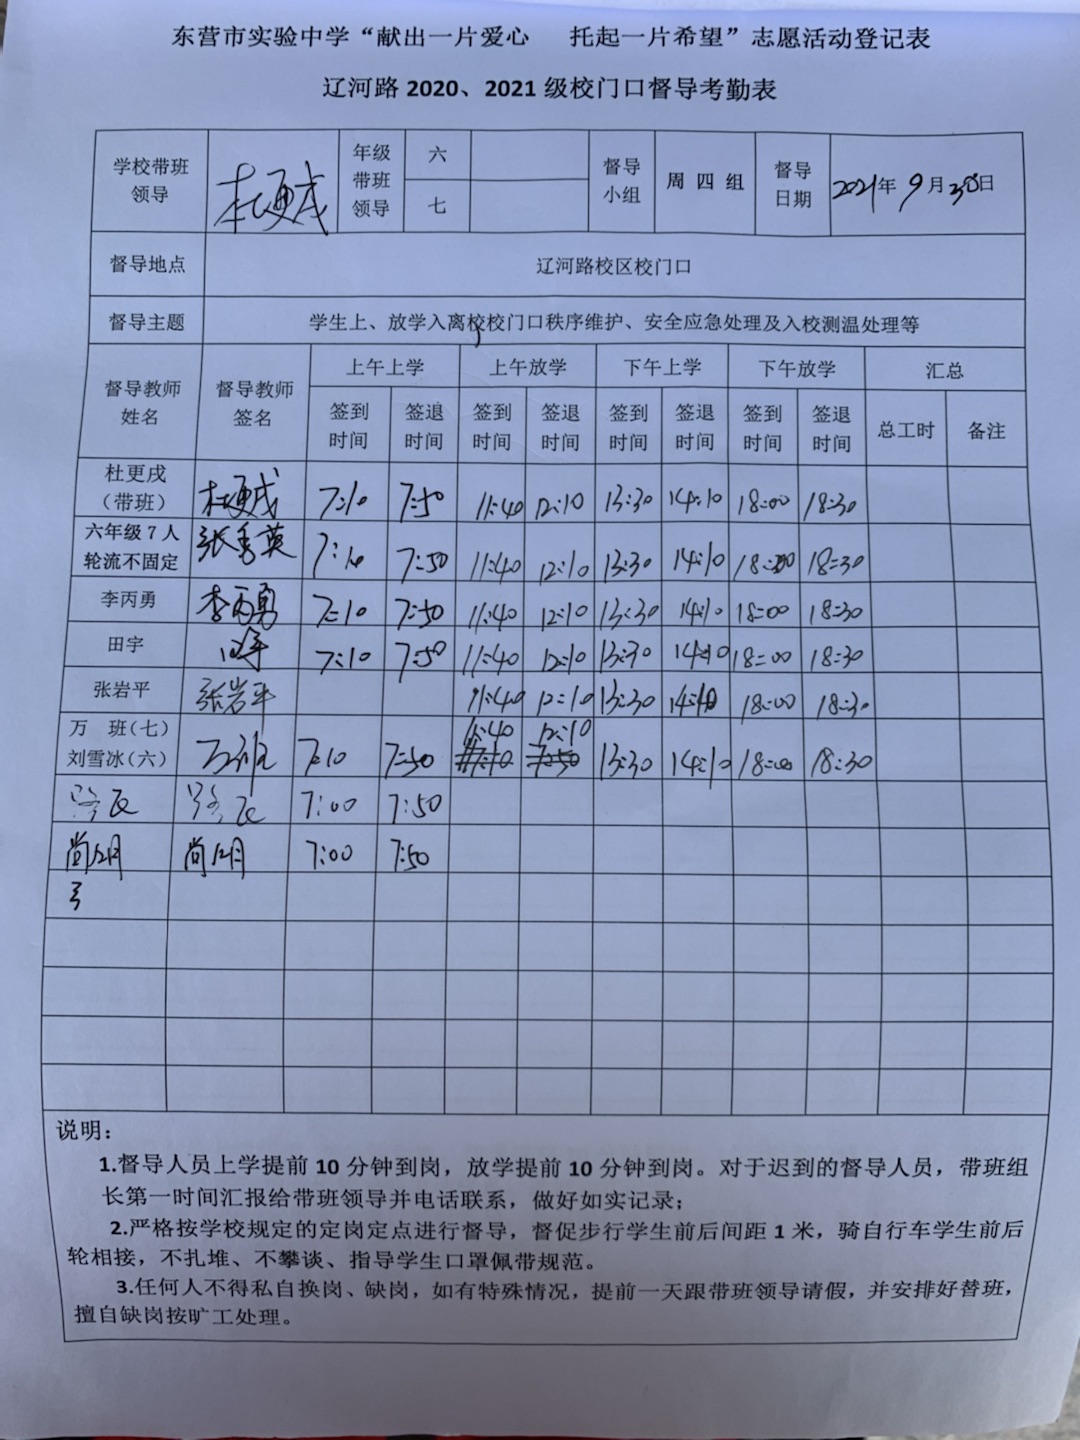 东营市实验中学“献出一片爱心 托起一片希望”志愿活动登记表
辽河路 2020、2021 级校门口督导考勤表
学校带班领导 杜更戌 年级带班领导 六 七 督导小组 周四组 督导日期 2021年9月30日
督导地点 辽河路校区校门口
督导主题 学生上、放学入离校校门口秩序维护、安全应急处理及入校测温处理等
督导教师姓名 督导教师签名 上午上学 上午放学 下午上学 下午放学 汇总
签到时间 签退时间 签到时间 签退时间 签到时间 签退时间 签到时间 签退时间 总工时 备注
杜更戌（带班） 杜更戌 7:10 7:50 11:40 12:10 13:30 14:10 18:00 18:30
六年级 7 人轮流不固定 张秀英 7:10 7:50 11:40 12:10 13:30 14:10 18:00 18:30
李丙勇 李丙勇 7:10 7:50 11:40 12:10 13:30 14:10 18:00 18:30
田宇 田宇 7:10 7:50 11:40 12:10 13:30 14:10 18:00 18:30
张岩平 张岩平 11:40 12:10 13:30 14:10 18:00 18:30
万 班(七) 刘雪冰(六) 万班 7:10 7:50 11:40 12:10 13:30 14:10 18:00 18:30
7:00 7:50
7:00 7:50
说明：
1.督导人员上学提前 10 分钟到岗，放学提前 10 分钟到岗。对于迟到的督导人员，带班组
长第一时间汇报给带班领导并电话联系，做好如实记录；
2.严格按学校规定的定岗定点进行督导，督促步行学生前后间距 1 米，骑自行车学生前后
轮相接，不扎堆、不攀谈、指导学生口罩佩带规范。
3.任何人不得私自换岗、缺岗，如有特殊情况，提前一天跟带班领导请假，并安排好替班，
擅自缺岗按旷工处理。